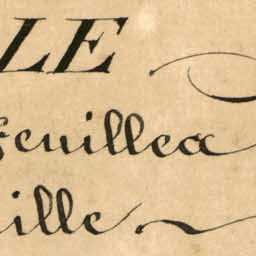 LE
feuillea
ille